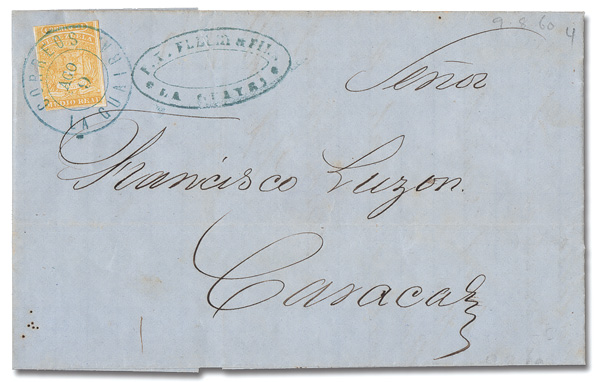 9.8.60
4
CORREOS
LA GUAIRA
AGO
9
MEDIO REAL
& FIL.
LA GUAYRA
Señor
Francisco Luzon.
Caracas